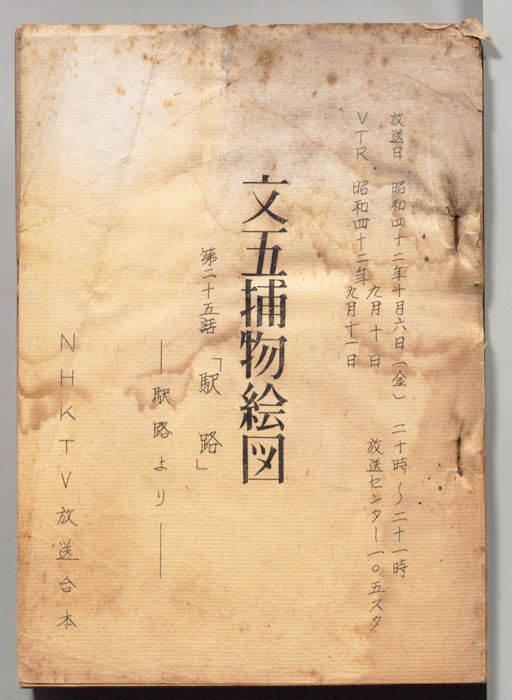 放送日 昭和四十二年十月六日（金） 二十時～二十一時
VTR 昭和四十二年 九月十日 九月十一日 放送センター一〇五スタ
文五捕物絵図
第二十五話「駅路」
――駅路より――
NHKTV放送台本